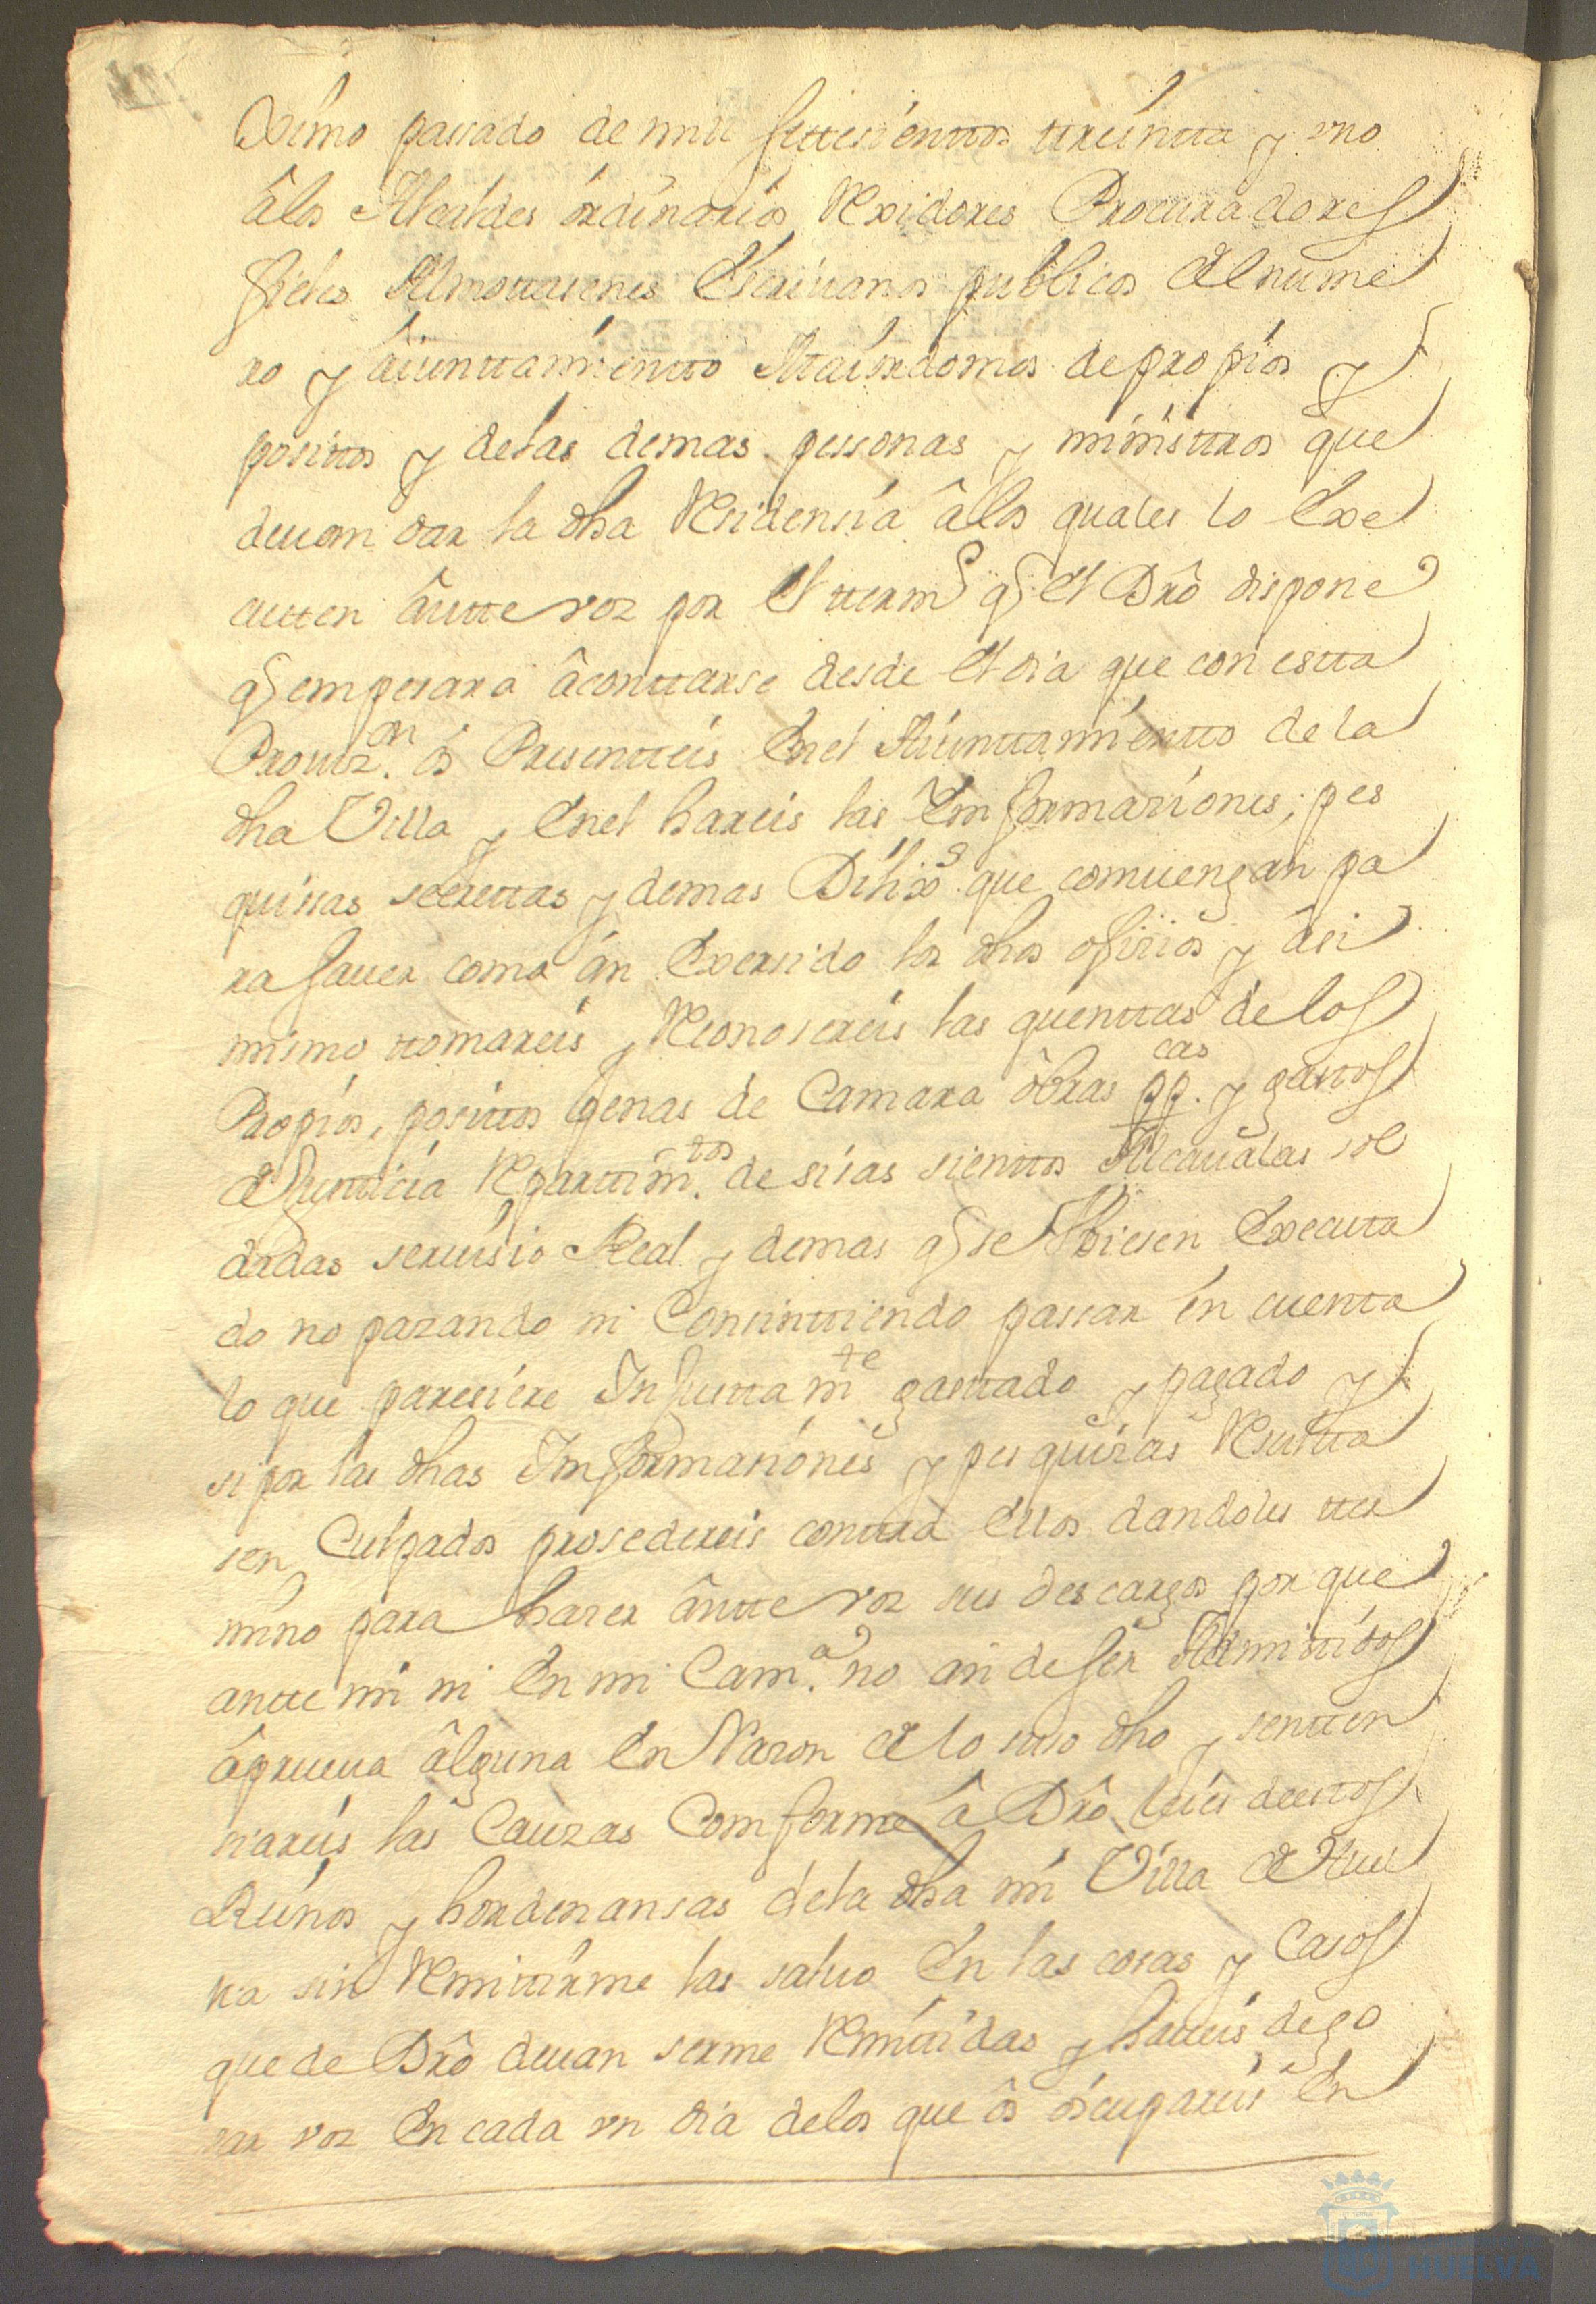 ximo passado de mill settesienttos ttreintta y vno
â los Alcaldes ôrdinarios Rexidores Procuradores
fieles Almottasenes Escriuanos publicos del nume
ro y aiunttamientto Maiordomos de propios y
posittos y delas demas perssonas y ministtros que
deuan dar la dha Residensia â los quales lo Exe
cutten ântte vos por el tterm.º q̃ el Drô dispone
q̃ empesara âconttarse desde el dia que con estta
Prouiz.on ôs Presentteis Enel Aiunttamientto de la
dha Villa y Enel hareis las Imformasiones, pes
quissas secrettas y demas Dilix.s que comuengan pa
ra sauer como ân Exersido los dhos ofisios y âsi
mismo ttomareis y Reconosereis las quenttas de los
Propios, posittos penas de Camara ôbras pp.cas y gasttos
de Justticia Reparttim.tos de sisas sienttos Alcaualas sol
dadas seruisio Real y demas q̃ se hubiesen Executa
do no pazando ni Consinttiendo passar en cuentta
lo que paresiere Injustam.te gasttado y pagado y
si por las dhas Imformasiones y pesquizas Resultta
sen Culpados prosedereis conttra Ellos dandoles tter
mino para haser ântte vos sus descargos por que
antte mi ni En mi Cam.a no an de ser Admittidos
âprueua âlguna En Rason de lo suso dho y sentten
siareis las Cauzas Comforme â Drô leies destos
Reinos y hordenansas dela dha mi Villa de Huel
va sin Remittirme las saluo En las cosas y Casos
que de Drô deuan serme Remittidas y haueis de go
sar vos En cada vn dia delos que ôs ôscupareis En
HUELVA